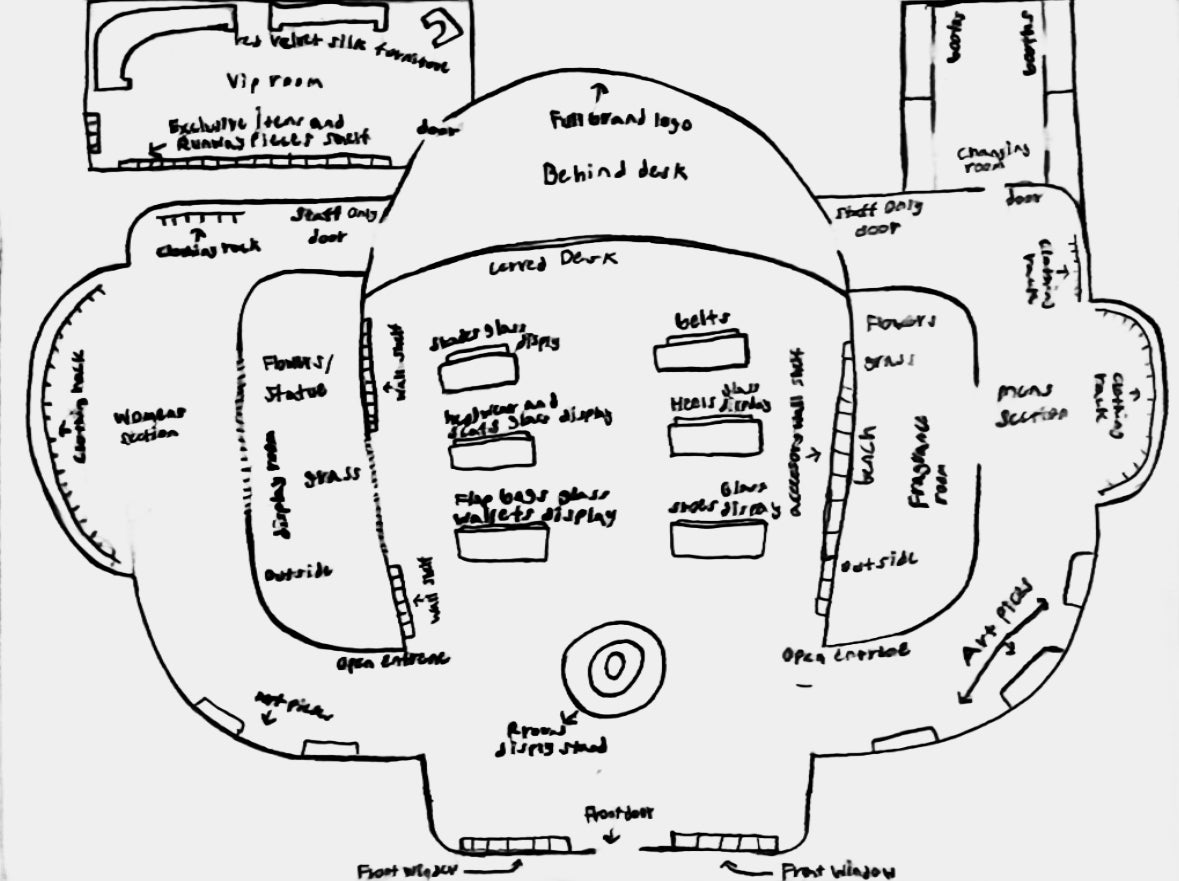 red velvet silk furniture
Vip room
Exclusive Items and
Runway Pieces shelf
door
Full brand logo
Behind desk
booths
booths
Changing
room
door
Staff Only
door
Clothing rack
Staff Only
door
Curved Desk
Clothing
rack
Clothing rack
Womens
section
Flowers/
Statue
grass
display room
outside
wall shelf
wall shelf
shades glass
display
headwear and
glass display
Flap bags glass
wallets display
belts
Heels glass
display
shoes Glass
display
wall shelf
bench
Flowers
grass
Fragrance
room
outside
mens
section
Clothing
rack
Open entrence
Open entrence
Art pieces
Art pices
display stand
Front door
Front Window
Front Window